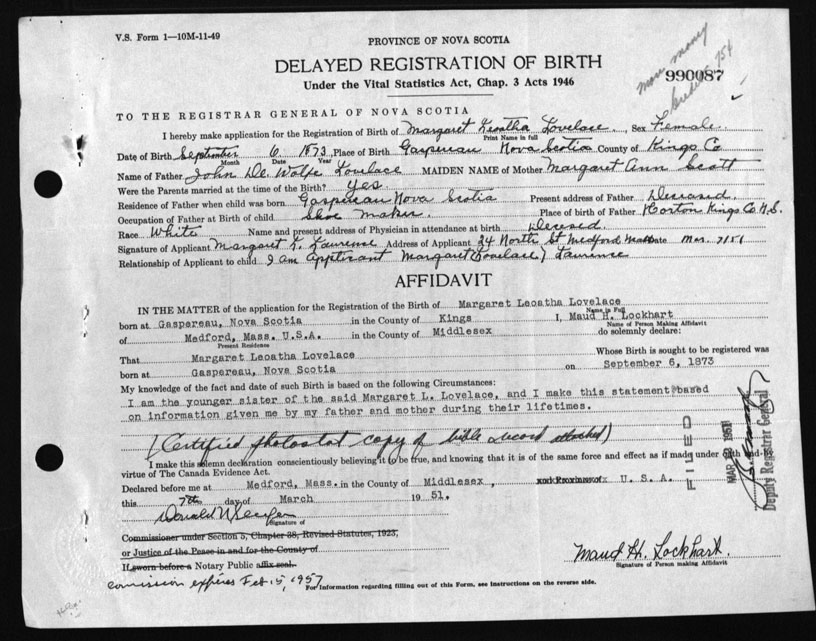 V.S. Form 1—10M-11-49
PROVINCE OF NOVA SCOTIA
DELAYED REGISTRATION OF BIRTH
Under the Vital Statistics Act, Chap. 3 Acts 1946
more money
990087
TO THE REGISTRAR GENERAL OF NOVA SCOTIA
I hereby make application for the Registration of Birth of Margaret Leoatha Lovelace, Sex Female
Print Name in full
Date of Birth September 6 1873 Place of Birth Gaspereau Nova Scotia County of Kings Co
Month Date Year
Name of Father John De Wolfe Lovelace MAIDEN NAME of Mother Margaret Ann Scott
Were the Parents married at the time of the Birth? Yes
Residence of Father when child was born Gaspereau Nova Scotia Present address of Father Deceased.
Occupation of Father at Birth of child Shoe Maker. Place of birth of Father Horton Kings Co N.S.
Race White Name and present address of Physician in attendance at birth Decesed.
Signature of Applicant Margaret L. Laurence Address of Applicant 24 North St Medford Mass Date Mar. 7/51
Relationship of Applicant to child I am Applicant Margaret (Lovelace) Laurence
AFFIDAVIT
IN THE MATTER of the application for the Registration of the Birth of Margaret Leoatha Lovelace
Name in Full
born at Gaspereau, Nova Scotia in the County of Kings I, Maud H. Lockhart
Name of Person Making Affidavit
of Medford, Mass. U.S.A. in the County of Middlesex do solemnly declare:
Present Residence
That Margaret Leoatha Lovelace Whose Birth is sought to be registered was
born at Gaspereau, Nova Scotia on September 6, 1873
My knowledge of the fact and date of such Birth is based on the following Circumstances:
I am the younger sister of the said Margaret L. Lovelace, and I make this statement based
on information given me by my father and mother during their lifetimes.
(Certified photostat copy of bible record attached)
I make this solemn declaration conscientiously believing it to be true, and knowing that it is of the same force and effect as if made under oath and by
virtue of The Canada Evidence Act.
Declared before me at Medford, Mass. in the County of Middlesex, and Province of U. S. A.
this 7th day of March 1951.
Signature of
Commissioner under Section 5, Chapter 38, Revised Statutes, 1923,
or Justice of the Peace in and for the County of
If sworn before a Notary Public affix seal.
Comission expires Feb 15, 1957
For Information regarding filling out of this Form, see instructions on the reverse side.
Maud H. Lockhart.
Signature of Person making Affidavit
FILED
MAR 1951
Deputy Registrar General